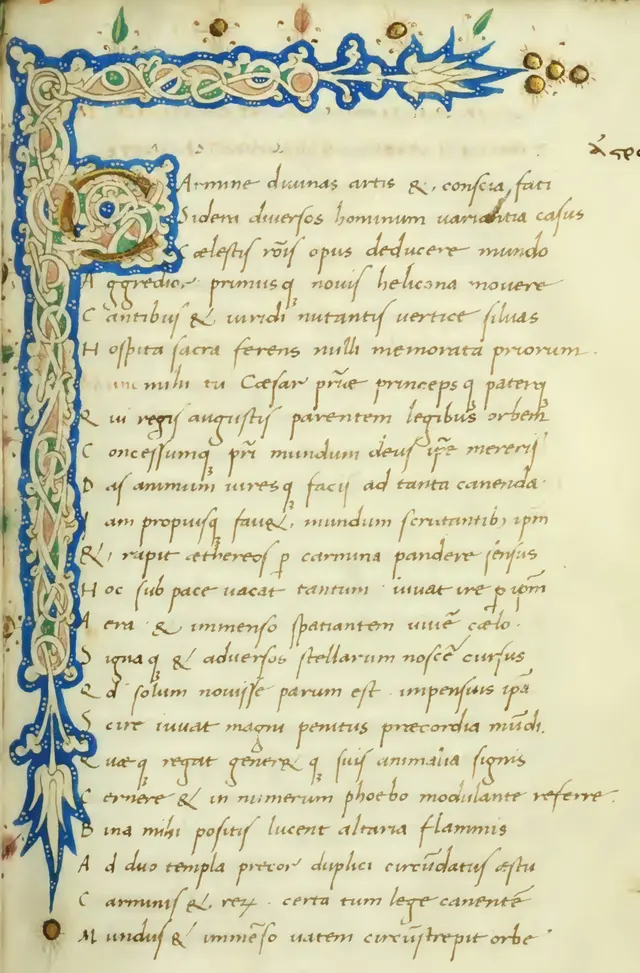 ἀστρο
CArmine diuinas artis &, conscia fati
Sidera diuersos hominum uariantia casus
Cælestis rōis opus deducere mundo
A ggredior primusq nouis helicona mouere
C antibus & uiridi nutantis uertice siluas
H ospita sacra ferens nulli memorata priorum.
unc mihi tu Cæsar prı̄e princeps q paterq
Q ui regis augustis parentem legibus orbem
C oncessumq prı̄ mundum deus ip̄e mereris
D as animum uiresq facis ad tanta canenda.
I am propiusq fau&, mundum scrutantib; ip̄m
&, cupit æthereos p carmina pandere sensus
H oc sub pace uacat tantum. iuuat ire p ip̄m
A era. & immenso spatiantem uiuē cælo.
S igna q & aduersos stellarum noscē cursus
Q d solum nouisse parum est. impensius ip̄a
S cire iuuat magni penitus præcordia mūdi.
Q uæ q regat gener& q suis animalia signis
C ernere & in numerum phoebo modulante referre.
B ina mihi positis lucent altaria flammis
A d duo templa precor duplici circūdatus æstu
C arminis &, reꝝ. certa tum lege canentē
M undus & immēso uatem circūstrepit orbe.